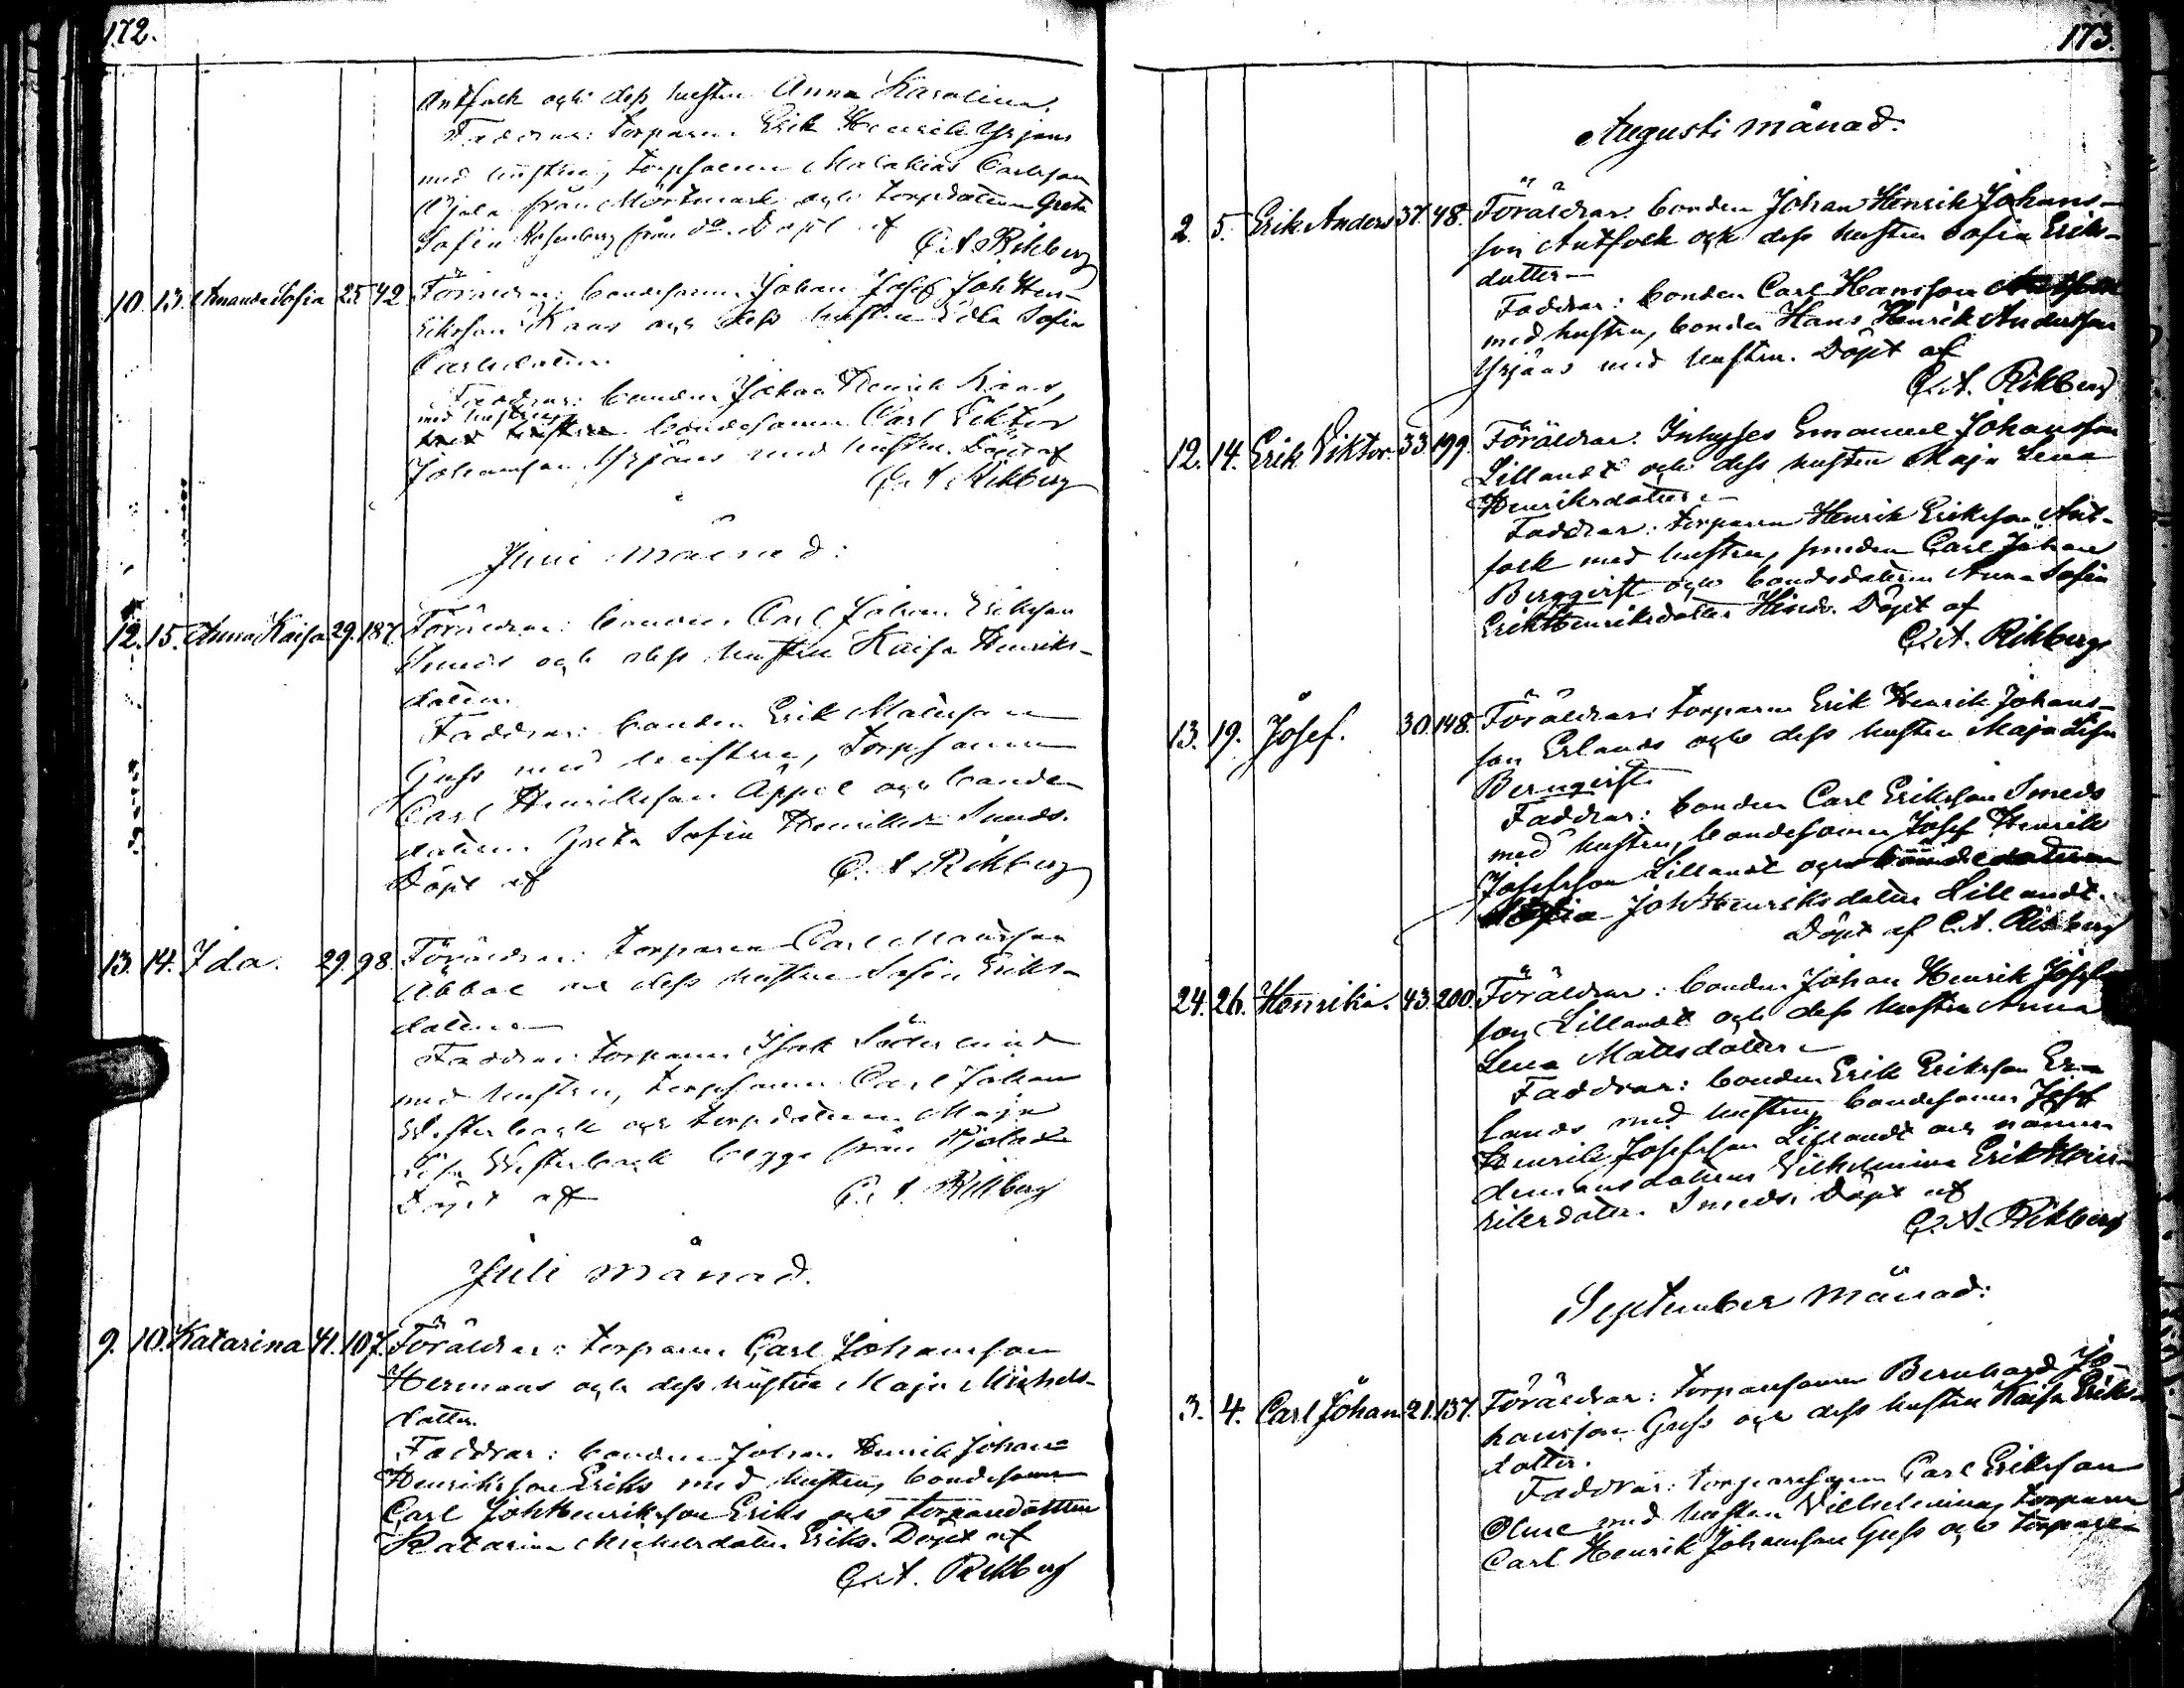 172.
Antfolk och dess hustru Anna Karolina.
Faddrar: torparen Erik Henrik Yrjans
med hustru, torpsonen Malakias Carlsson
från Mörtmark och torpdottern Greta
Sofia Rosenberg från do. Döpt af
C. A. Rikberg
10. 13. Amanda Sofia 25 42 Föräldrar: bondesonen Johan Josef Joh Hen-
riksson Kaas och dess hustru Edla Sofia
Carlsdotter.
Faddrar: bonden Johan Henrik Kaas,
med hustru,
bondesonen Carl Viktor
Johansson Yrjäns med hustru. Döpt af
C. A. Rikberg
Juni månad:
12. 15. Anna Kaisa 29. 187. Föräldrar: bonden Carl Johan Eriksson
Smeds och dess hustru Kaisa Henriks-
dotter.
Faddrar: bonden Erik Mattsson
Guss med hustru, torpsonen
Carl Henriksson Äppel och bonde-
dottern Greta Sofia Henriksdr Smeds.
Döpt af C. A. Rikberg
13. 14. Ida. 29. 98. Föräldrar: torparen Carl Mattsson
Abbal och dess hustru Sofia Eriks-
dotter
Faddrar: torparen Isak Söderlund
med hustru, torpsonen Carl Johan
Westerback och torpdottern Maja
Lisa Westerback begge från
Döpt af C. A. Rikberg
Juli månad.
9. 10. Katarina 41. 107. Föräldrar: torparen Carl Johansson
Hermans och dess hustru Maja Michels-
dotter.
Faddrar: bonden Johan Henrik Johan
Henriksson Eriks med hustru, bondesonen
Carl JohHenriksson Eriks och torparedottern
Katarina Michelsdotter Eriks. Döpt af
C. A. Rikberg
173.
Augusti månad:
2. 5. Erik Anders 37. 48. Föräldrar: bonden Johan Henrik Johans-
son Antfolk och dess hustru Sofia Eriks-
dotter
Faddrar: bonden Carl Hansson
med hustru, bonden Hans Henrik Andersson
Yrjäns med hustru. Döpt af
C. A. Rikberg
12. 14. Erik Viktor. 33. 199. Föräldrar: Inhyses Emanuel Johansson
Lillandt och dess hustru Maja Lena
Henriksdotter
Faddrar: torparen Henrik Eriksson Ant-
folk med hustru, smeden Carl Johan
Bergqvist och bondedottern Anna Sofia
ErikHenriksdotter Hinds. Döpt af
C. A. Rikberg
13. 19. Josef. 30. 148. Föräldrar: torparen Erik Henrik Johans-
son Erlands och dess hustru Maja Lisa
Bernqvist
Faddrar: bonden Carl Eriksson Smeds
med hustru, bondesonen Josef Henrik
Josefsson Lillandt och bondedottern
Sofia JohHenriksdotter Lillandt.
Döpt af C. A. Rikberg
24. 26. Henrika. 43. 200. Föräldrar: bonden Johan Henrik Josefs-
son Lillandt och dess hustru Anna
Lena Mattsdotter
Faddrar: bonden Erik Eriksson Er-
lands med hustru, bondesonen Josef
Henrik Josefsson Lillandt och näm-
demansdottern Vilhelmina ErikHen-
riksdotter Smeds. Döpt af
C. A. Rikberg
September månad:
3. 4. Carl Johan 21. 137. Föräldrar: torparesonen Bernhard Jo-
hansson Guss och dess hustru Kaisa Eriks-
dotter.
Faddrar: torparesonen Carl Eriksson
med hustru Vilhelmina, torparen
Carl Henrik Johansson Guss och torpare-